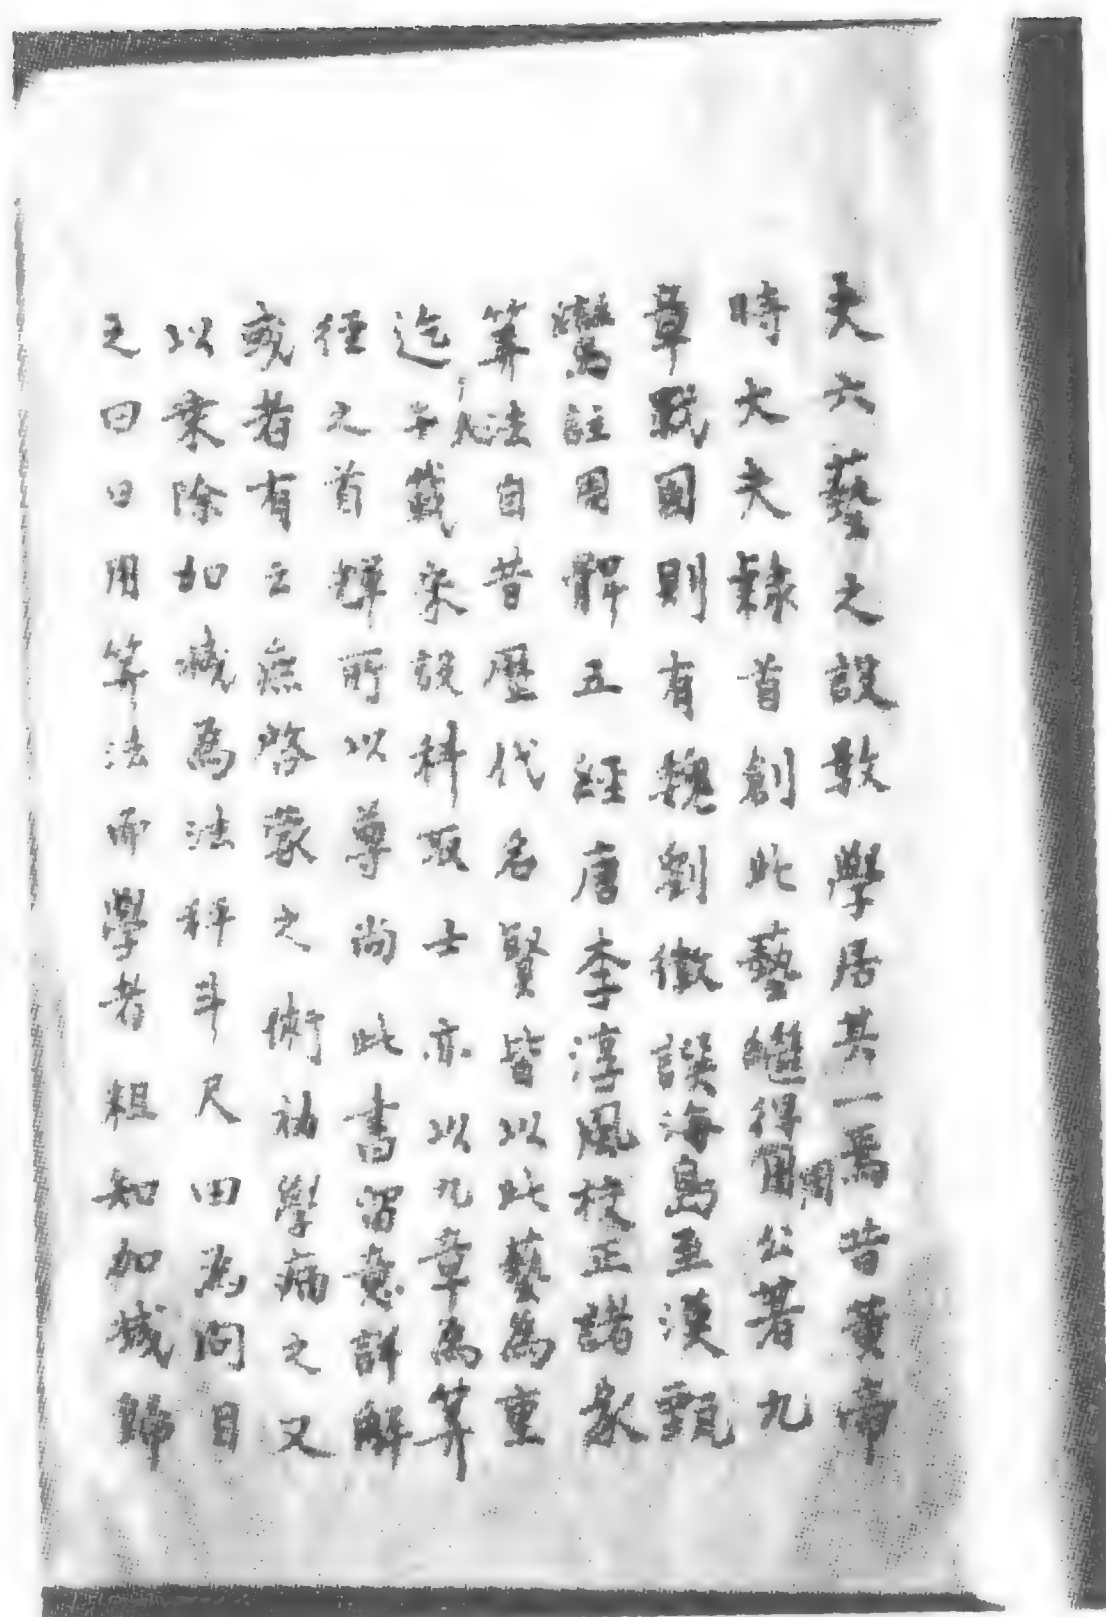 夫六藝之設數學居其一焉昔黃帝
時大夫隸首創此藝繼得周公著九
章戰國則有魏劉徽譔海島至漢甄
鸞註周髀五經唐李淳風校正諸家
筭法自昔歷代名賢皆以此藝為重
迄于我宋設科取士亦以九章為筭
經之首輝所以尊尚此書習意詳解
或者有云無啓蒙之術初學病之又
以乘除加減為法秤斗尺田為問目
之曰日用筭法而學者粗知加減歸